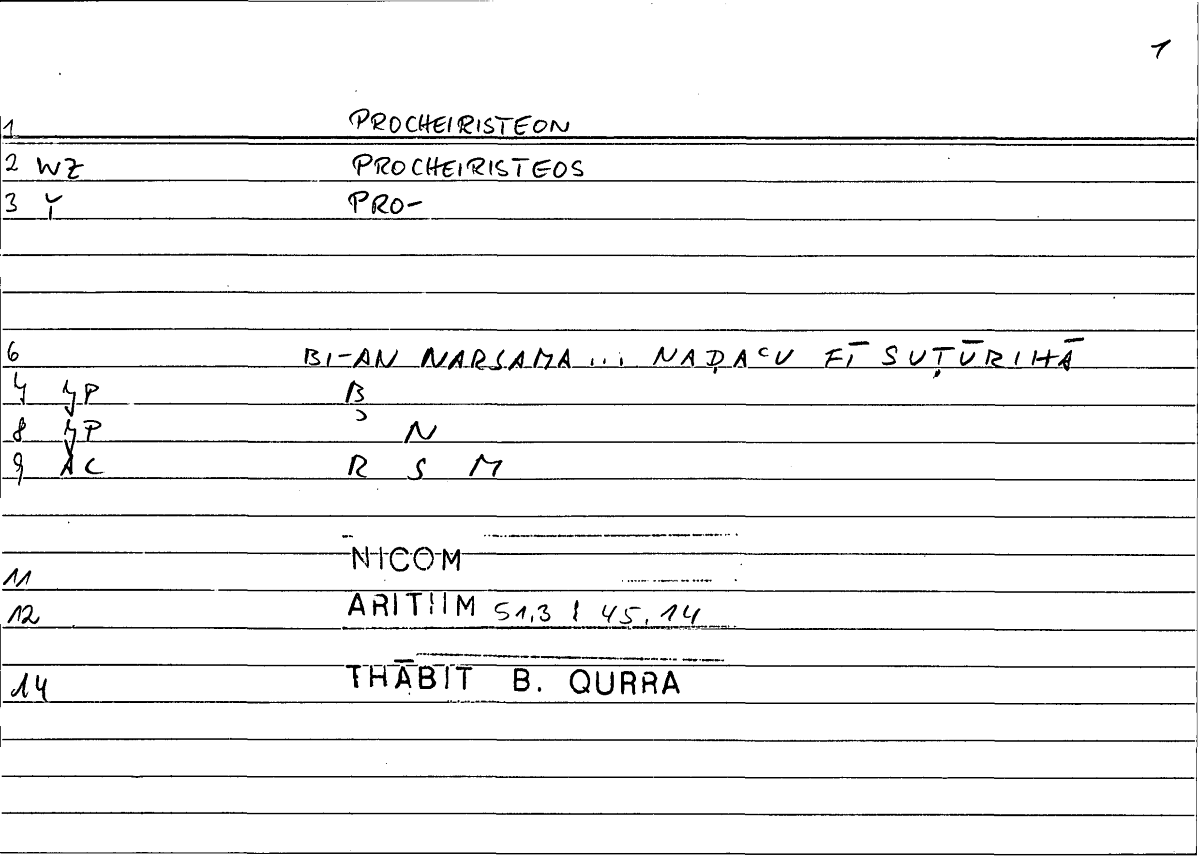 1
1 PROCHEIRISTEON
2 WZ PROCHEIRISTEOS
3 Y PRO-
6 BI-AN NARSAMA ... NAḌAᶜU FĪ SUṬŪRIHĀ
P B
8 P ʾ N
9 AC R S M
11 NICOM
12 ARITHM 51,3 | 45,14
14 THĀBIT B. QURRA